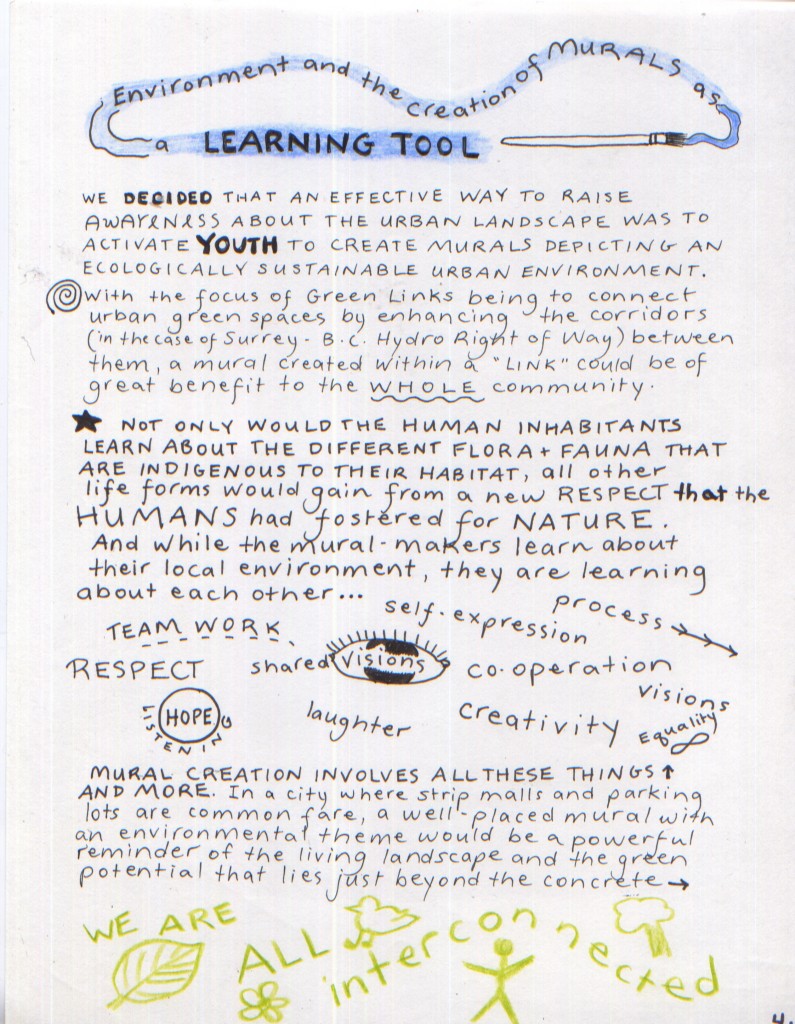 Environment and the creation of MURALS as
a LEARNING TOOL
WE DECIDED THAT AN EFFECTIVE WAY TO RAISE
AWARENESS ABOUT THE URBAN LANDSCAPE WAS TO
ACTIVATE YOUTH TO CREATE MURALS DEPICTING AN
ECOLOGICALLY SUSTAINABLE URBAN ENVIRONMENT.
With the focus of Green Links being to connect
urban green spaces by enhancing the corridors
(in the case of Surrey - B.C. Hydro Right of Way) between
them, a mural created within a "LINK" could be of
great benefit to the WHOLE community.
★ NOT ONLY WOULD THE HUMAN INHABITANTS
LEARN ABOUT THE DIFFERENT FLORA + FAUNA THAT
ARE INDIGENOUS TO THEIR HABITAT, all other
life forms would gain from a new RESPECT that the
HUMANS had fostered for NATURE.
And while the mural-makers learn about
their local environment, they are learning
about each other...
self-expression
process →→→
TEAM WORK
RESPECT
shared visions
co-operation
visions
HOPE
LISTENING
laughter
creativity
Equality
∞
MURAL CREATION INVOLVES ALL THESE THINGS ↑
AND MORE. In a city where strip malls and parking
lots are common fare, a well-placed mural with
an environmental theme would be a powerful
reminder of the living landscape and the green
potential that lies just beyond the concrete →
WE ARE
ALL
interconnected
4.